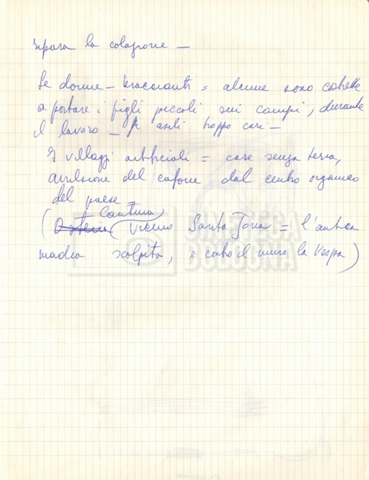 ripara la colazione —
Le donne - braccianti = alcune sono costrette
a portare i figli piccoli sui campi, durante
il lavoro — gli asili troppo cari —
I villaggi artificiali = case senza terra,
del cafone dal centro organico
del paese
(Osteria Cantina (Vicino Santa = l'antica
madia scolpita, e contro il muro la Vespa)
CINETECA
BOLOGNA